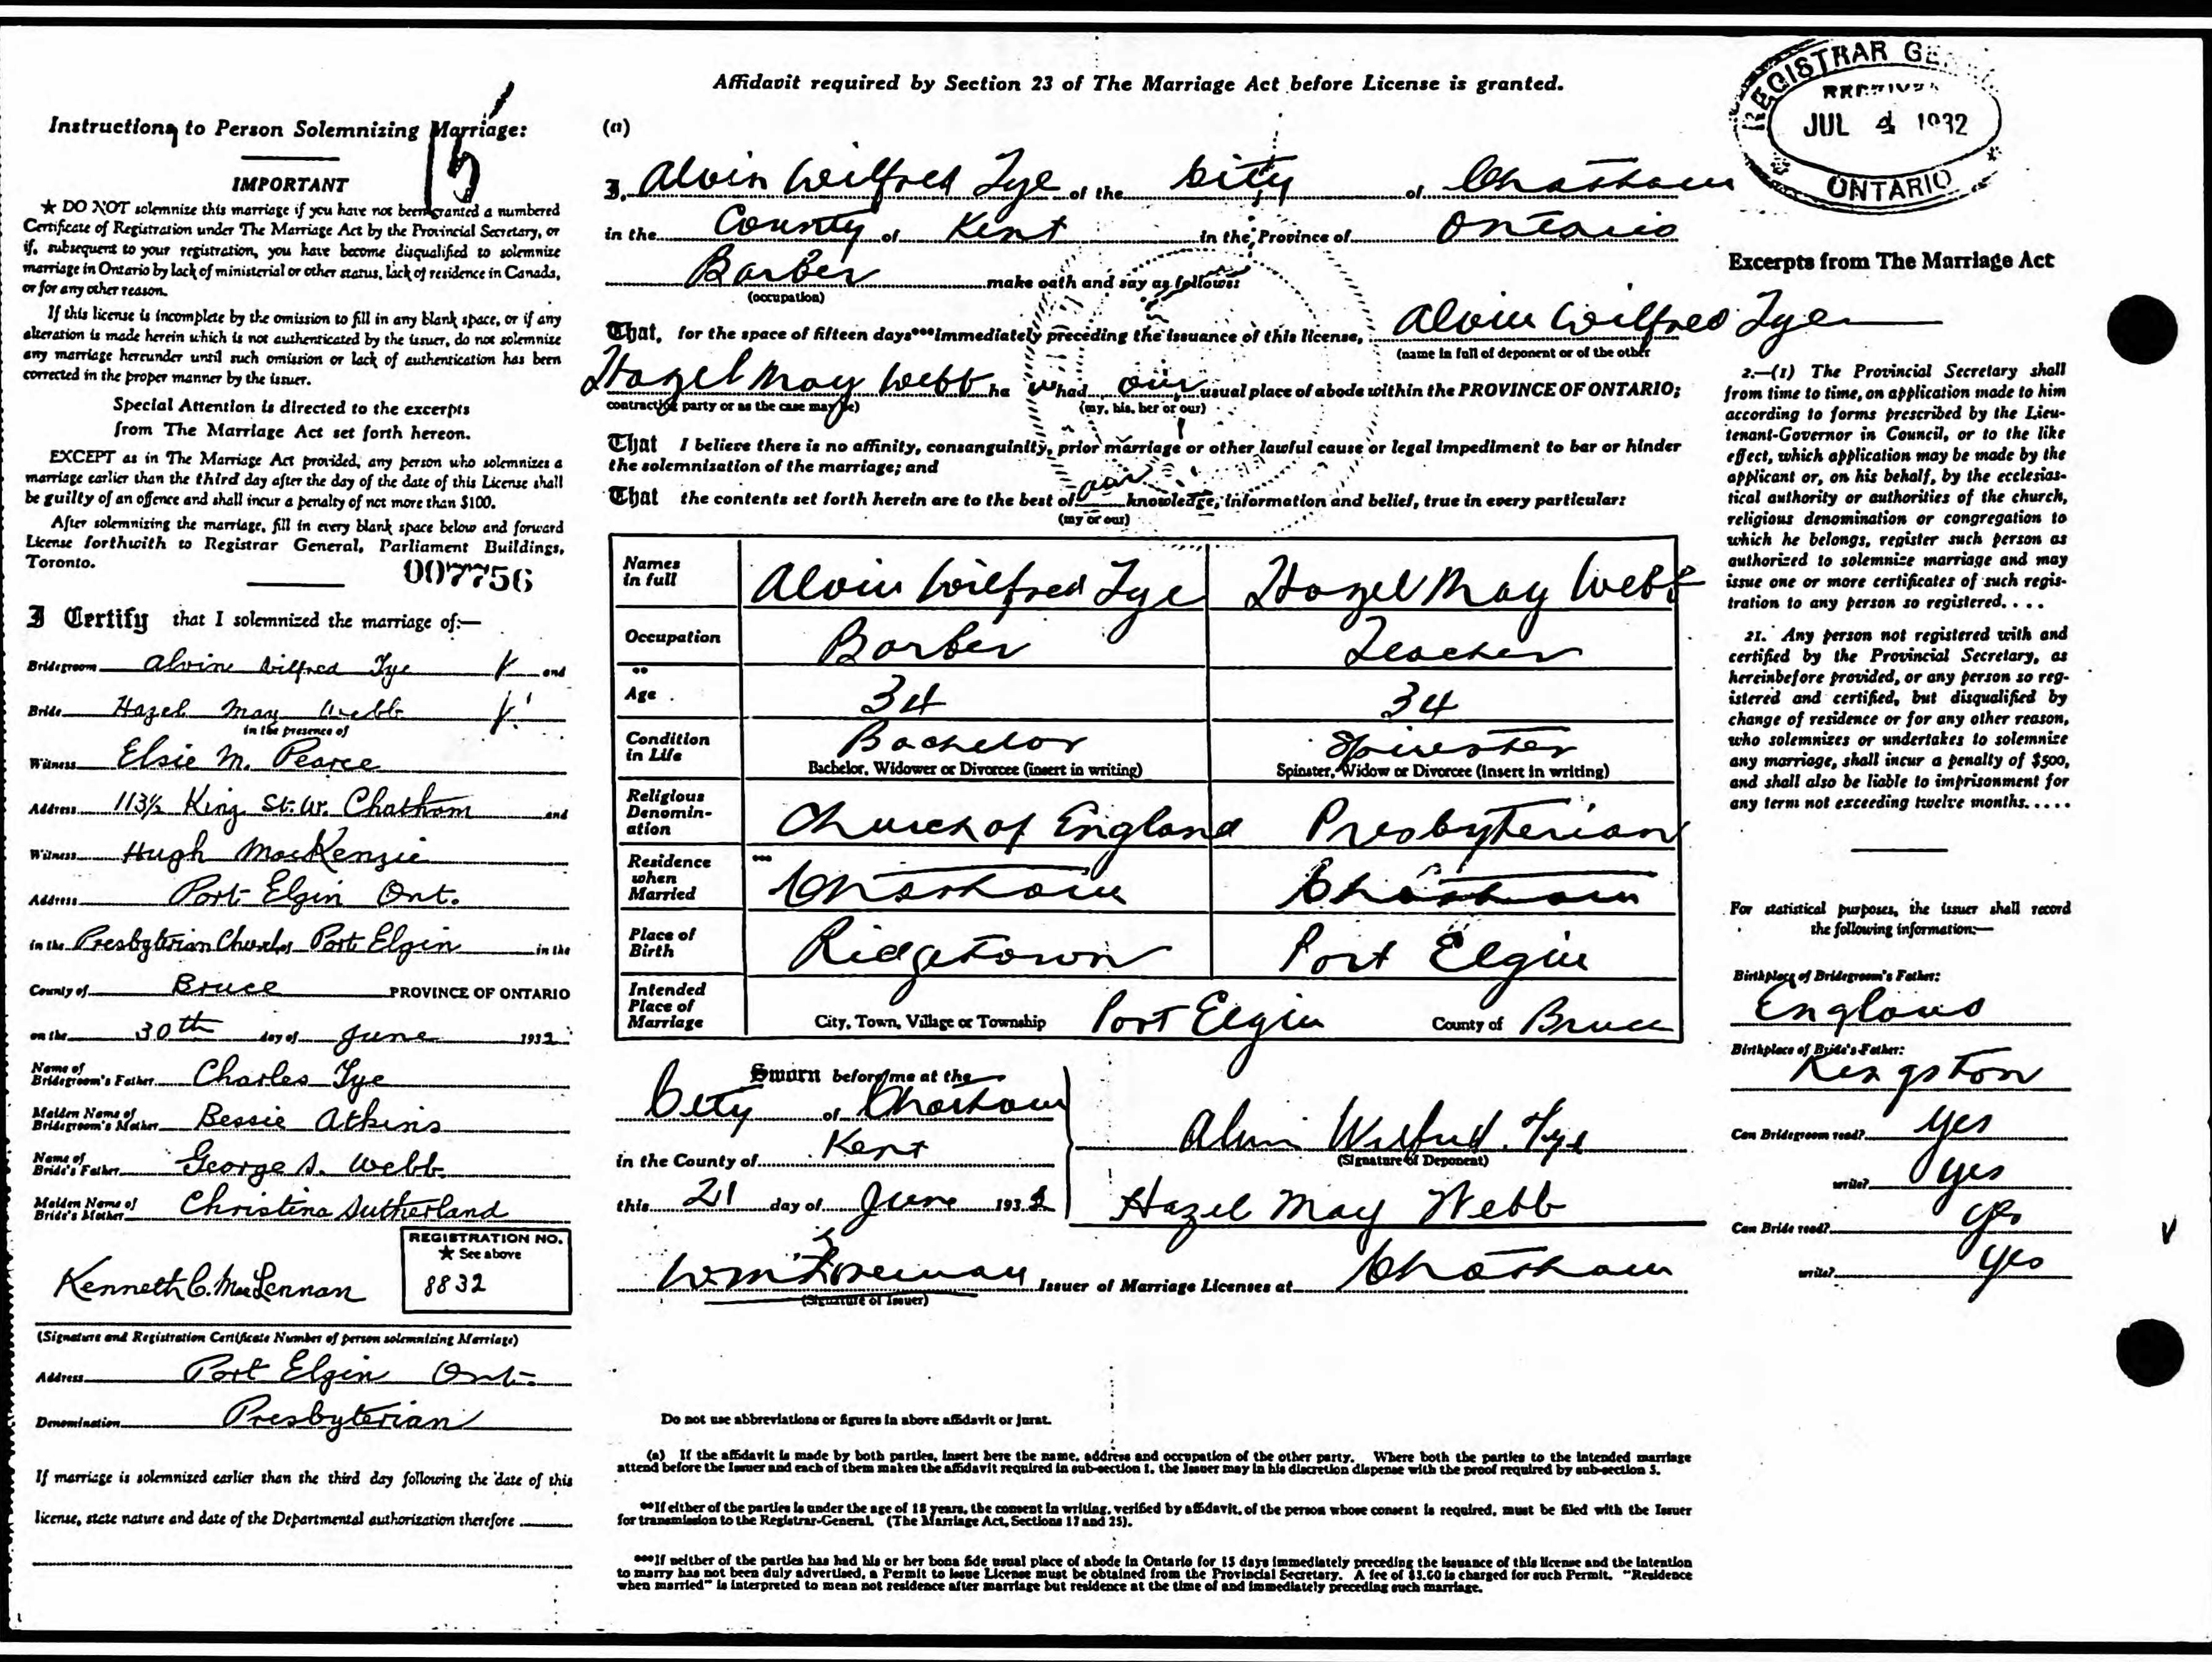 Affidavit required by Section 23 of The Marriage Act before License is granted.
REGISTRAR GE
RECEIVED
JUL 4 1932
ONTARIO
15
Instructions to Person Solemnizing Marriage:
IMPORTANT
★ DO NOT solemnize this marriage if you have not been granted a numbered
Certificate of Registration under The Marriage Act by the Provincial Secretary, or
if, subsequent to your registration, you have become disqualified to solemnize
marriage in Ontario by lack of ministerial or other status, lack of residence in Canada,
or for any other reason.
If this license is incomplete by the omission to fill in any blank space, or if any
alteration is made herein which is not authenticated by the issuer, do not solemnize
any marriage hereunder until such omission or lack of authentication has been
corrected in the proper manner by the issuer.
Special Attention is directed to the excerpts
from The Marriage Act set forth hereon.
EXCEPT as in The Marriage Act provided, any person who solemnizes a
marriage earlier than the third day after the day of the date of this License shall
be guilty of an offence and shall incur a penalty of not more than $100.
After solemnizing the marriage, fill in every blank space below and forward
License forthwith to Registrar General, Parliament Buildings,
Toronto.
007756
I Certify that I solemnized the marriage of:—
Bridegroom Alvin Wilfred Tye and
Bride Hazel May Webb
in the presence of
Witness Elsie M. Pearce
Address 113½ King St. W. Chatham and
Witness Hugh MacKenzie
Address Port Elgin Ont.
in the Presbyterian Church, Port Elgin in the
County of Bruce PROVINCE OF ONTARIO
on the 30th day of June 1932
Name of Bridegroom's Father Charles Tye
Maiden Name of Bridegroom's Mother Bessie Atkins
Name of Bride's Father George A. Webb
Maiden Name of Bride's Mother Christina Sutherland
REGISTRATION NO.
★ See above
8832
Kenneth C. MacLennan
(Signature and Registration Certificate Number of person solemnizing Marriage)
Address Port Elgin Ont.
Denomination Presbyterian
If marriage is solemnized earlier than the third day following the date of this
license, state nature and date of the Departmental authorization therefore
(a)
I, Alvin Wilfred Tye of the City of Chatham
in the County of Kent in the Province of Ontario
Barber make oath and say as follows:
(occupation)
That, for the space of fifteen days***immediately preceding the issuance of this license, Alvin Wilfred Tye
(name in full of deponent or of the other
Hazel May Webb ha had our usual place of abode within the PROVINCE OF ONTARIO;
contracting party or as the case may be) (my, his, her or our)
That I believe there is no affinity, consanguinity, prior marriage or other lawful cause or legal impediment to bar or hinder
the solemnization of the marriage; and
That the contents set forth herein are to the best of our knowledge, information and belief, true in every particular:
(my or our)
Names in full Alvin Wilfred Tye Hazel May Webb
Occupation Barber Teacher
**
Age 34 34
Condition in Life Bachelor Spinster
Bachelor, Widower or Divorcee (insert in writing) Spinster, Widow or Divorcee (insert in writing)
Religious Denomination Church of England Presbyterian
Residence when Married *** Chatham Chatham
Place of Birth Ridgetown Port Elgin
Intended Place of Marriage City, Town, Village or Township Port Elgin County of Bruce
Sworn before me at the
City of Chatham
in the County of Kent
this 21 day of June 1932
Alvin Wilfred Tye
(Signature of Deponent)
Hazel May Webb
Wm Foreman Issuer of Marriage Licenses at Chatham
(Signature of Issuer)
Do not use abbreviations or figures in above affidavit or jurat.
(a) If the affidavit is made by both parties, insert here the name, address and occupation of the other party. Where both the parties to the intended marriage
attend before the Issuer and each of them makes the affidavit required in sub-section 1, the Issuer may in his discretion dispense with the proof required by sub-section 5.
**If either of the parties is under the age of 18 years, the consent in writing, verified by affidavit, of the person whose consent is required, must be filed with the Issuer
for transmission to the Registrar-General. (The Marriage Act, Sections 17 and 25).
***If neither of the parties has had his or her bona fide usual place of abode in Ontario for 15 days immediately preceding the issuance of this license and the intention
to marry has not been duly advertised, a Permit to Issue License must be obtained from the Provincial Secretary. A fee of $5.00 is charged for such Permit. "Residence
when married" is interpreted to mean not residence after marriage but residence at the time of and immediately preceding such marriage.
Excerpts from The Marriage Act
2.—(1) The Provincial Secretary shall
from time to time, on application made to him
according to forms prescribed by the Lieu-
tenant-Governor in Council, or to the like
effect, which application may be made by the
applicant or, on his behalf, by the ecclesias-
tical authority or authorities of the church,
religious denomination or congregation to
which he belongs, register such person as
authorized to solemnize marriage and may
issue one or more certificates of such regis-
tration to any person so registered. . . .
21. Any person not registered with and
certified by the Provincial Secretary, as
hereinbefore provided, or any person so reg-
istered and certified, but disqualified by
change of residence or for any other reason,
who solemnizes or undertakes to solemnize
any marriage, shall incur a penalty of $500,
and shall also be liable to imprisonment for
any term not exceeding twelve months. . . . .
For statistical purposes, the issuer shall record
the following information:—
Birthplace of Bridegroom's Father:
England
Birthplace of Bride's Father:
Kingston
Can Bridegroom read? yes
write? yes
Can Bride read? yes
write? yes